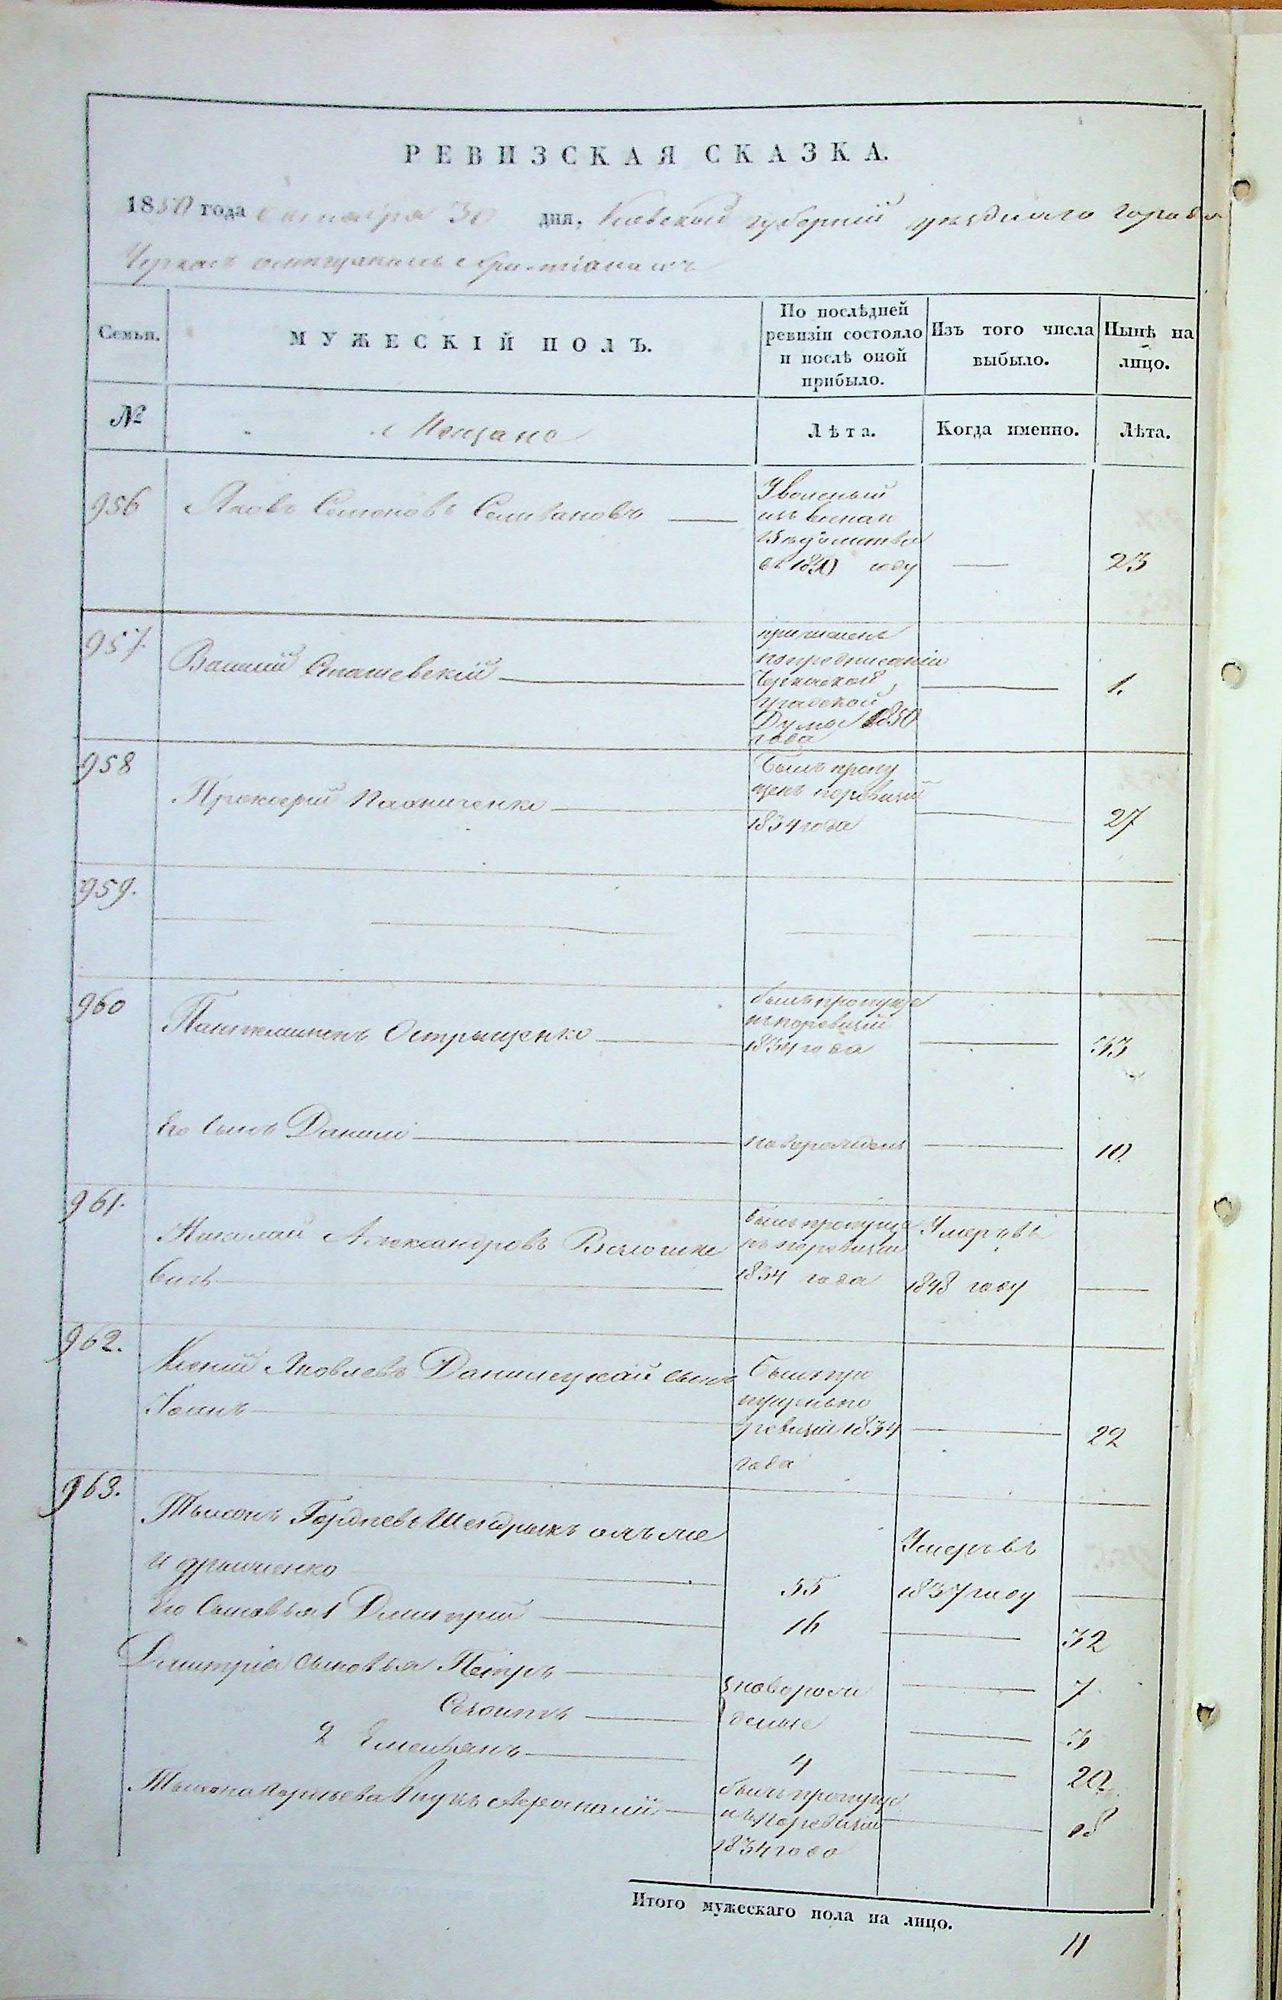 РЕВИЗСКАЯ СКАЗКА.
1850 года октября 30 дня, Киевской губерніи уѣзднаго города
Черкасъ омѣщанахъ христіанахъ
Семьи.
МУЖЕСКІЙ ПОЛЪ.
По послѣдней
ревизіи состояло
и послѣ оной
прибыло.
Изъ того числа
выбыло.
Нынѣ на
лицо.
№
Мещане
Лѣта.
Когда именно.
Лѣта.
956
Яковъ Семеновъ Селивановъ
Уволеный
изъ
Вѣдомства
въ 1850 году
23
957.
Василій
причисленъ
попредписанію
Черкаской
градской
Думы 1850
года
1.
958
Прокофій
былъ пропу
щенъ поревизіи
1834 года
27
959.
960
Пантелимонъ Острищенко
былъ пропуще
нъ поревизіи
1834 года
33
Его сынъ Данило
новорожденъ
10.
961.
Николай Александровъ
вичъ
былъ пропуще
нъ поревизіи
1834 года
Умеръ въ
1848 году
962.
Яковлевъ Данилецкій сынъ
Іоанъ
былъ про
пущенъ по
ревизіи 1834
года
22
963.
Гордѣевъ Шендрикъ онъ же
и
55
Умеръ въ
1837 году
Его Сыновья 1 Дмитрій
16
32
Дмитрія сыновья Петръ
новорож
7
деные
3
2 Емельянъ
4
20.
внукъ Афанасій
былъ пропуще
нъ поревизіи
1834 года
18
Итого мужескаго пола на лицо.
11